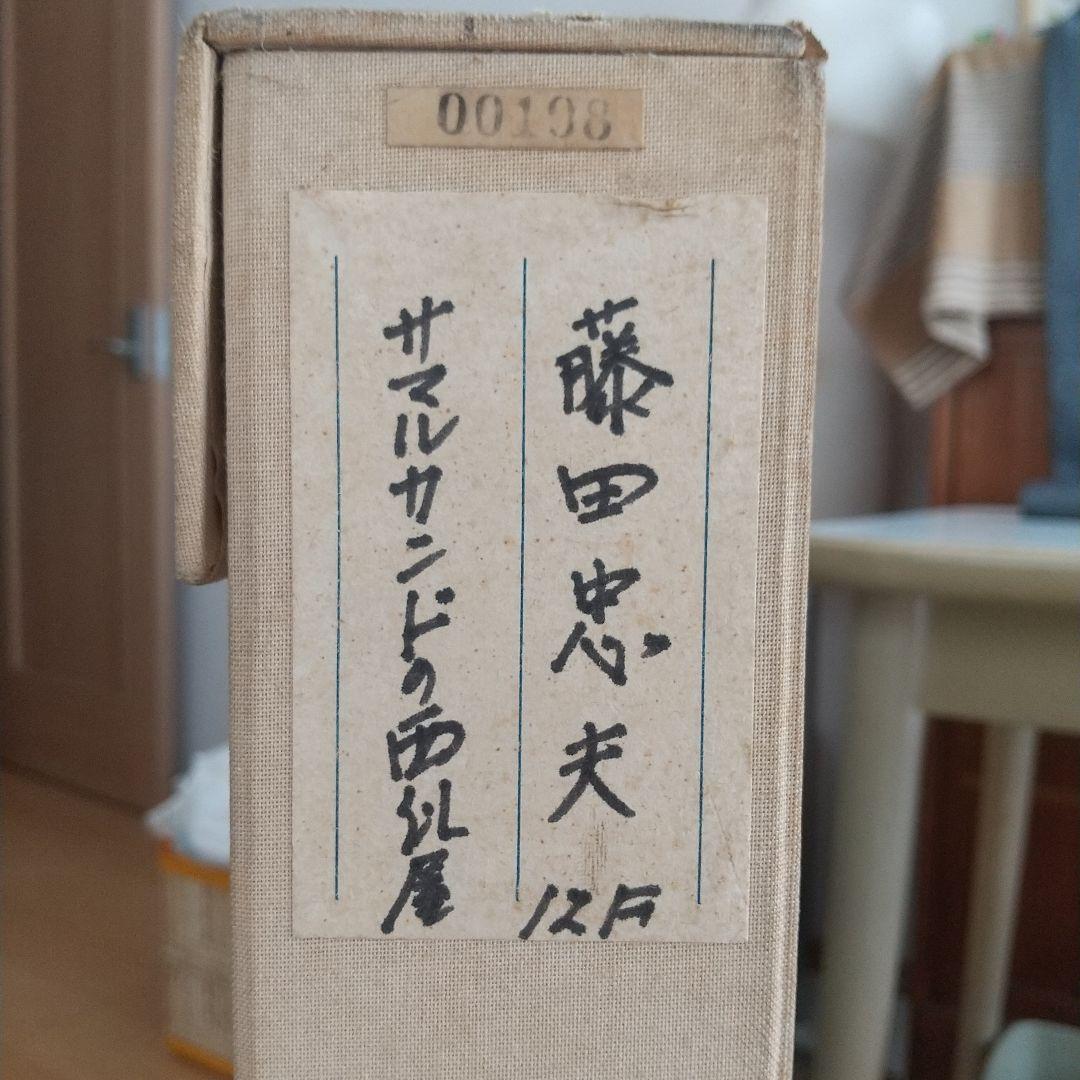 00198
藤田忠夫 12F
サマルカンドの西瓜屋